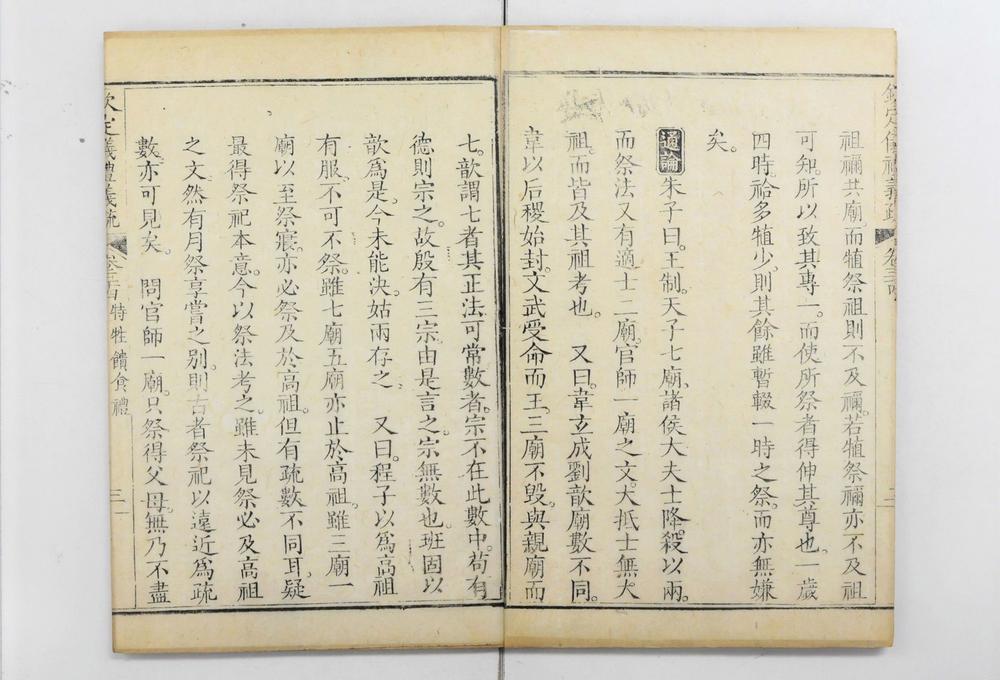 欽定儀禮義疏 卷三十四
祖禰共廟而犆祭祖則不及禰若犆祭禰亦不及祖
可知所以致其專一而使所祭者得伸其尊也一歲
四時祫多犆少則其餘雖暫輟一時之祭而亦無嫌
矣
通論 朱子曰王制天子七廟諸侯大夫士降殺以兩
而祭法又有適士二廟官師一廟之文大抵士無大
祖而皆及其祖考也 又曰韋玄成劉歆廟數不同
韋以后稷始封文武受命而王三廟不毁與親廟而
七歆謂七者其正法可常數者宗不在此數中苟有
德則宗之故殷有三宗由是言之宗無數也班固以
歆爲是今未能決姑兩存之 又曰程子以爲高祖
有服不可不祭雖七廟五廟亦止於高祖雖三廟一
廟以至祭寢亦必祭及於高祖但有疏數不同耳疑
最得祭祀本意今以祭法考之雖未見祭必及高祖
之文然有月祭享嘗之别則古者祭祀以遠近爲疏
數亦可見矣 問官師一廟只祭得父母無乃不盡
欽定儀禮義疏 卷三十四 特牲饋食禮